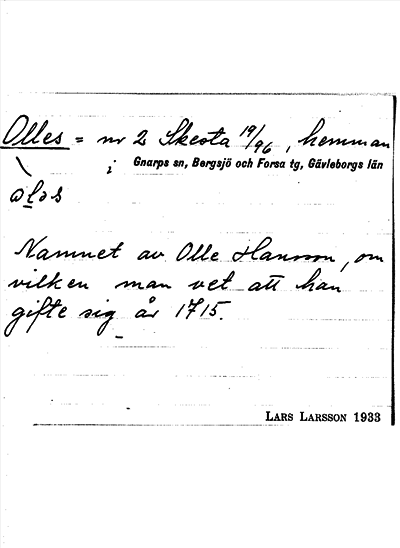 Olles = nr 2 Skesta 19/96, hemman
i Gnarps sn, Bergsjö och Forsa tg, Gävleborgs län
Namnet av Olle Hansson, om
vilken man vet att han
gifte sig år 1715.
LARS LARSSON 1933